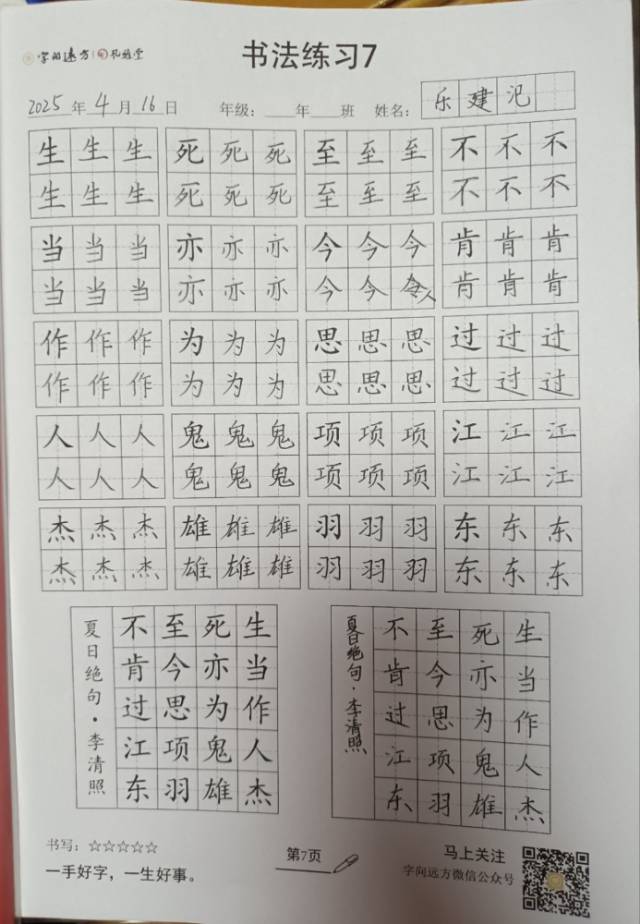 字间远方
书法练习7
2025年4月16日 年级：____年____班 姓名：乐建
生生生 死死死 至至至 不不不
生生生 死死死 至至至 不不不
当当当 亦亦亦 今今今 肯肯肯
当当当 亦亦亦 今今 肯肯肯
作作作 为为为 思思思 过过过
作作作 为为为 思思思 过过过
人人人 鬼鬼鬼 项项项 江江江
人人人 鬼鬼鬼 项项项 江江江
杰杰杰 雄雄雄 羽羽羽 东东东
杰杰杰 雄雄雄 羽羽羽 东东东
生当作人杰
死亦为鬼雄
至今思项羽
不肯过江东
夏日绝句·李清照
生当作人杰
死亦为鬼雄
至今思项羽
不肯过江东
夏日绝句·李清照
书写：☆☆☆☆☆
一手好字，一生好事。
第7页
马上关注
字间远方微信公众号